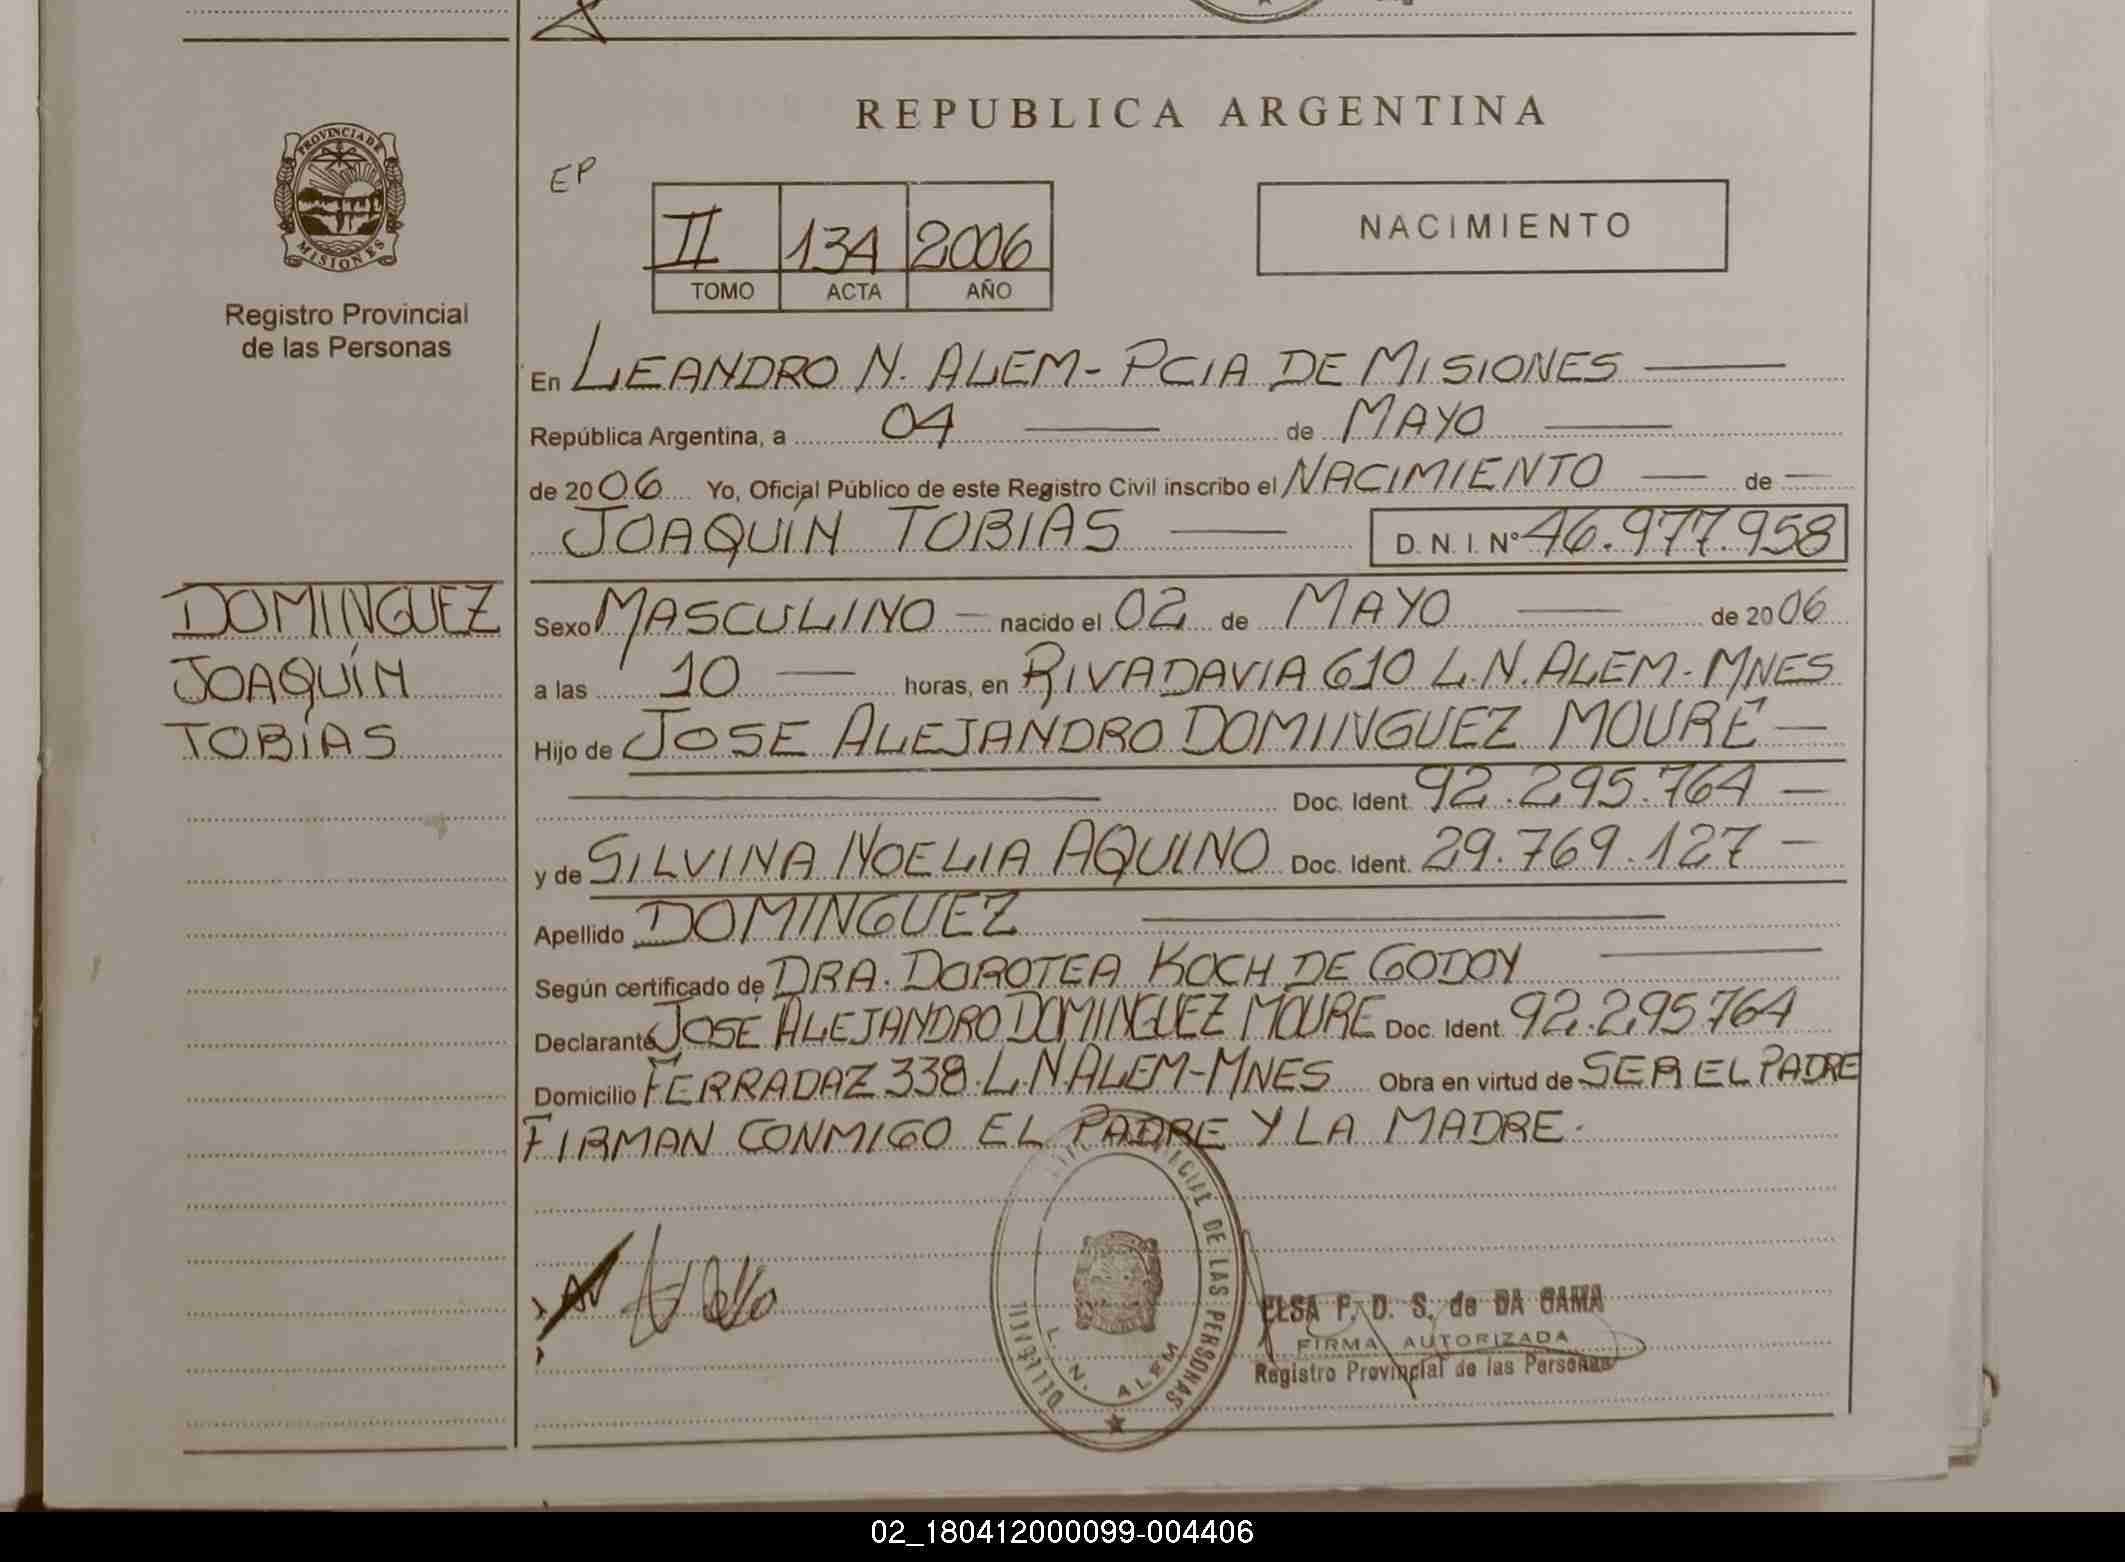 REPUBLICA ARGENTINA
PROVINCIA DE
MISIONES
Registro Provincial
de las Personas
EP
II 134 2006
TOMO ACTA AÑO
NACIMIENTO
En LEANDRO N. ALEM - PCIA DE MISIONES
República Argentina, a 04 de MAYO
de 2006 Yo, Oficial Público de este Registro Civil inscribo el NACIMIENTO de
JOAQUÍN TOBIAS D.N.I. Nº 46.977.958
DOMINGUEZ
JOAQUÍN
TOBÍAS
Sexo MASCULINO nacido el 02 de MAYO de 2006
a las 10 horas, en RIVADAVIA 610 L.N. ALEM - MNES
Hijo de JOSE ALEJANDRO DOMINGUEZ MOURE
Doc. Ident. 92.295.764
y de SILVINA NOELIA AQUINO Doc. Ident. 29.769.127
Apellido DOMINGUEZ
Según certificado de DRA. DOROTEA KOCH DE GODOY
Declarante JOSE ALEJANDRO DOMINGUEZ MOURE Doc. Ident. 92.295764
Domicilio FERRADAZ 338. L.N ALEM - MNES Obra en virtud de SER EL PADRE
FIRMAN CONMIGO EL PADRE Y LA MADRE.
DE LAS PERSONAS
L. N. ALEM
ELSA F. D. S. de DA GAMA
FIRMA AUTORIZADA
Registro Provincial de las Personas
02_180412000099-004406